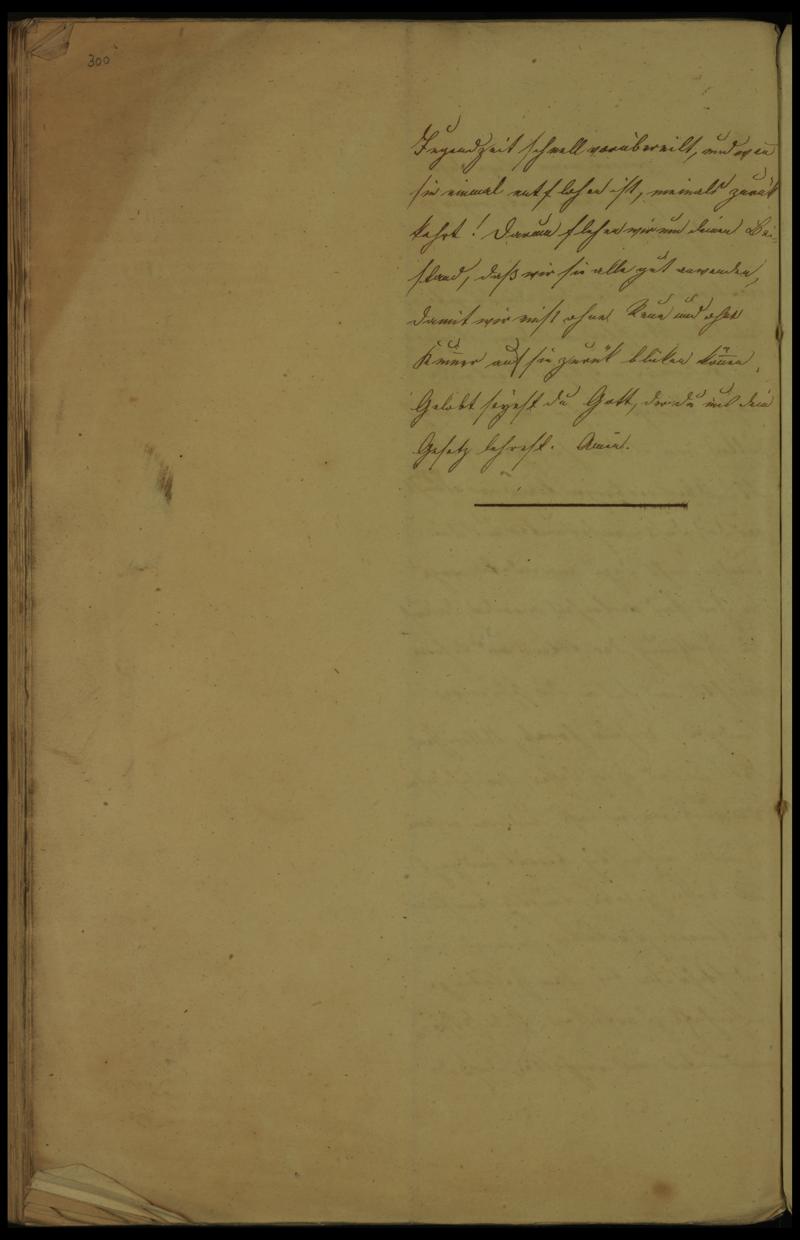 300
Jugendzeit schnell vorübereilt, und wen̄
sie einmal entflohen ist, niemals zurük
kehrt! Darum flehen wir um deinen Bei-
stand, daß wir sie alle gut anwenden,
damit wir einst ohne Reue und ohne
Kum̄er auf sie zurük bliken kön̄en.
Gelobt seyest du Gott, der du uns dein
Gesetz lehrest. Amen.